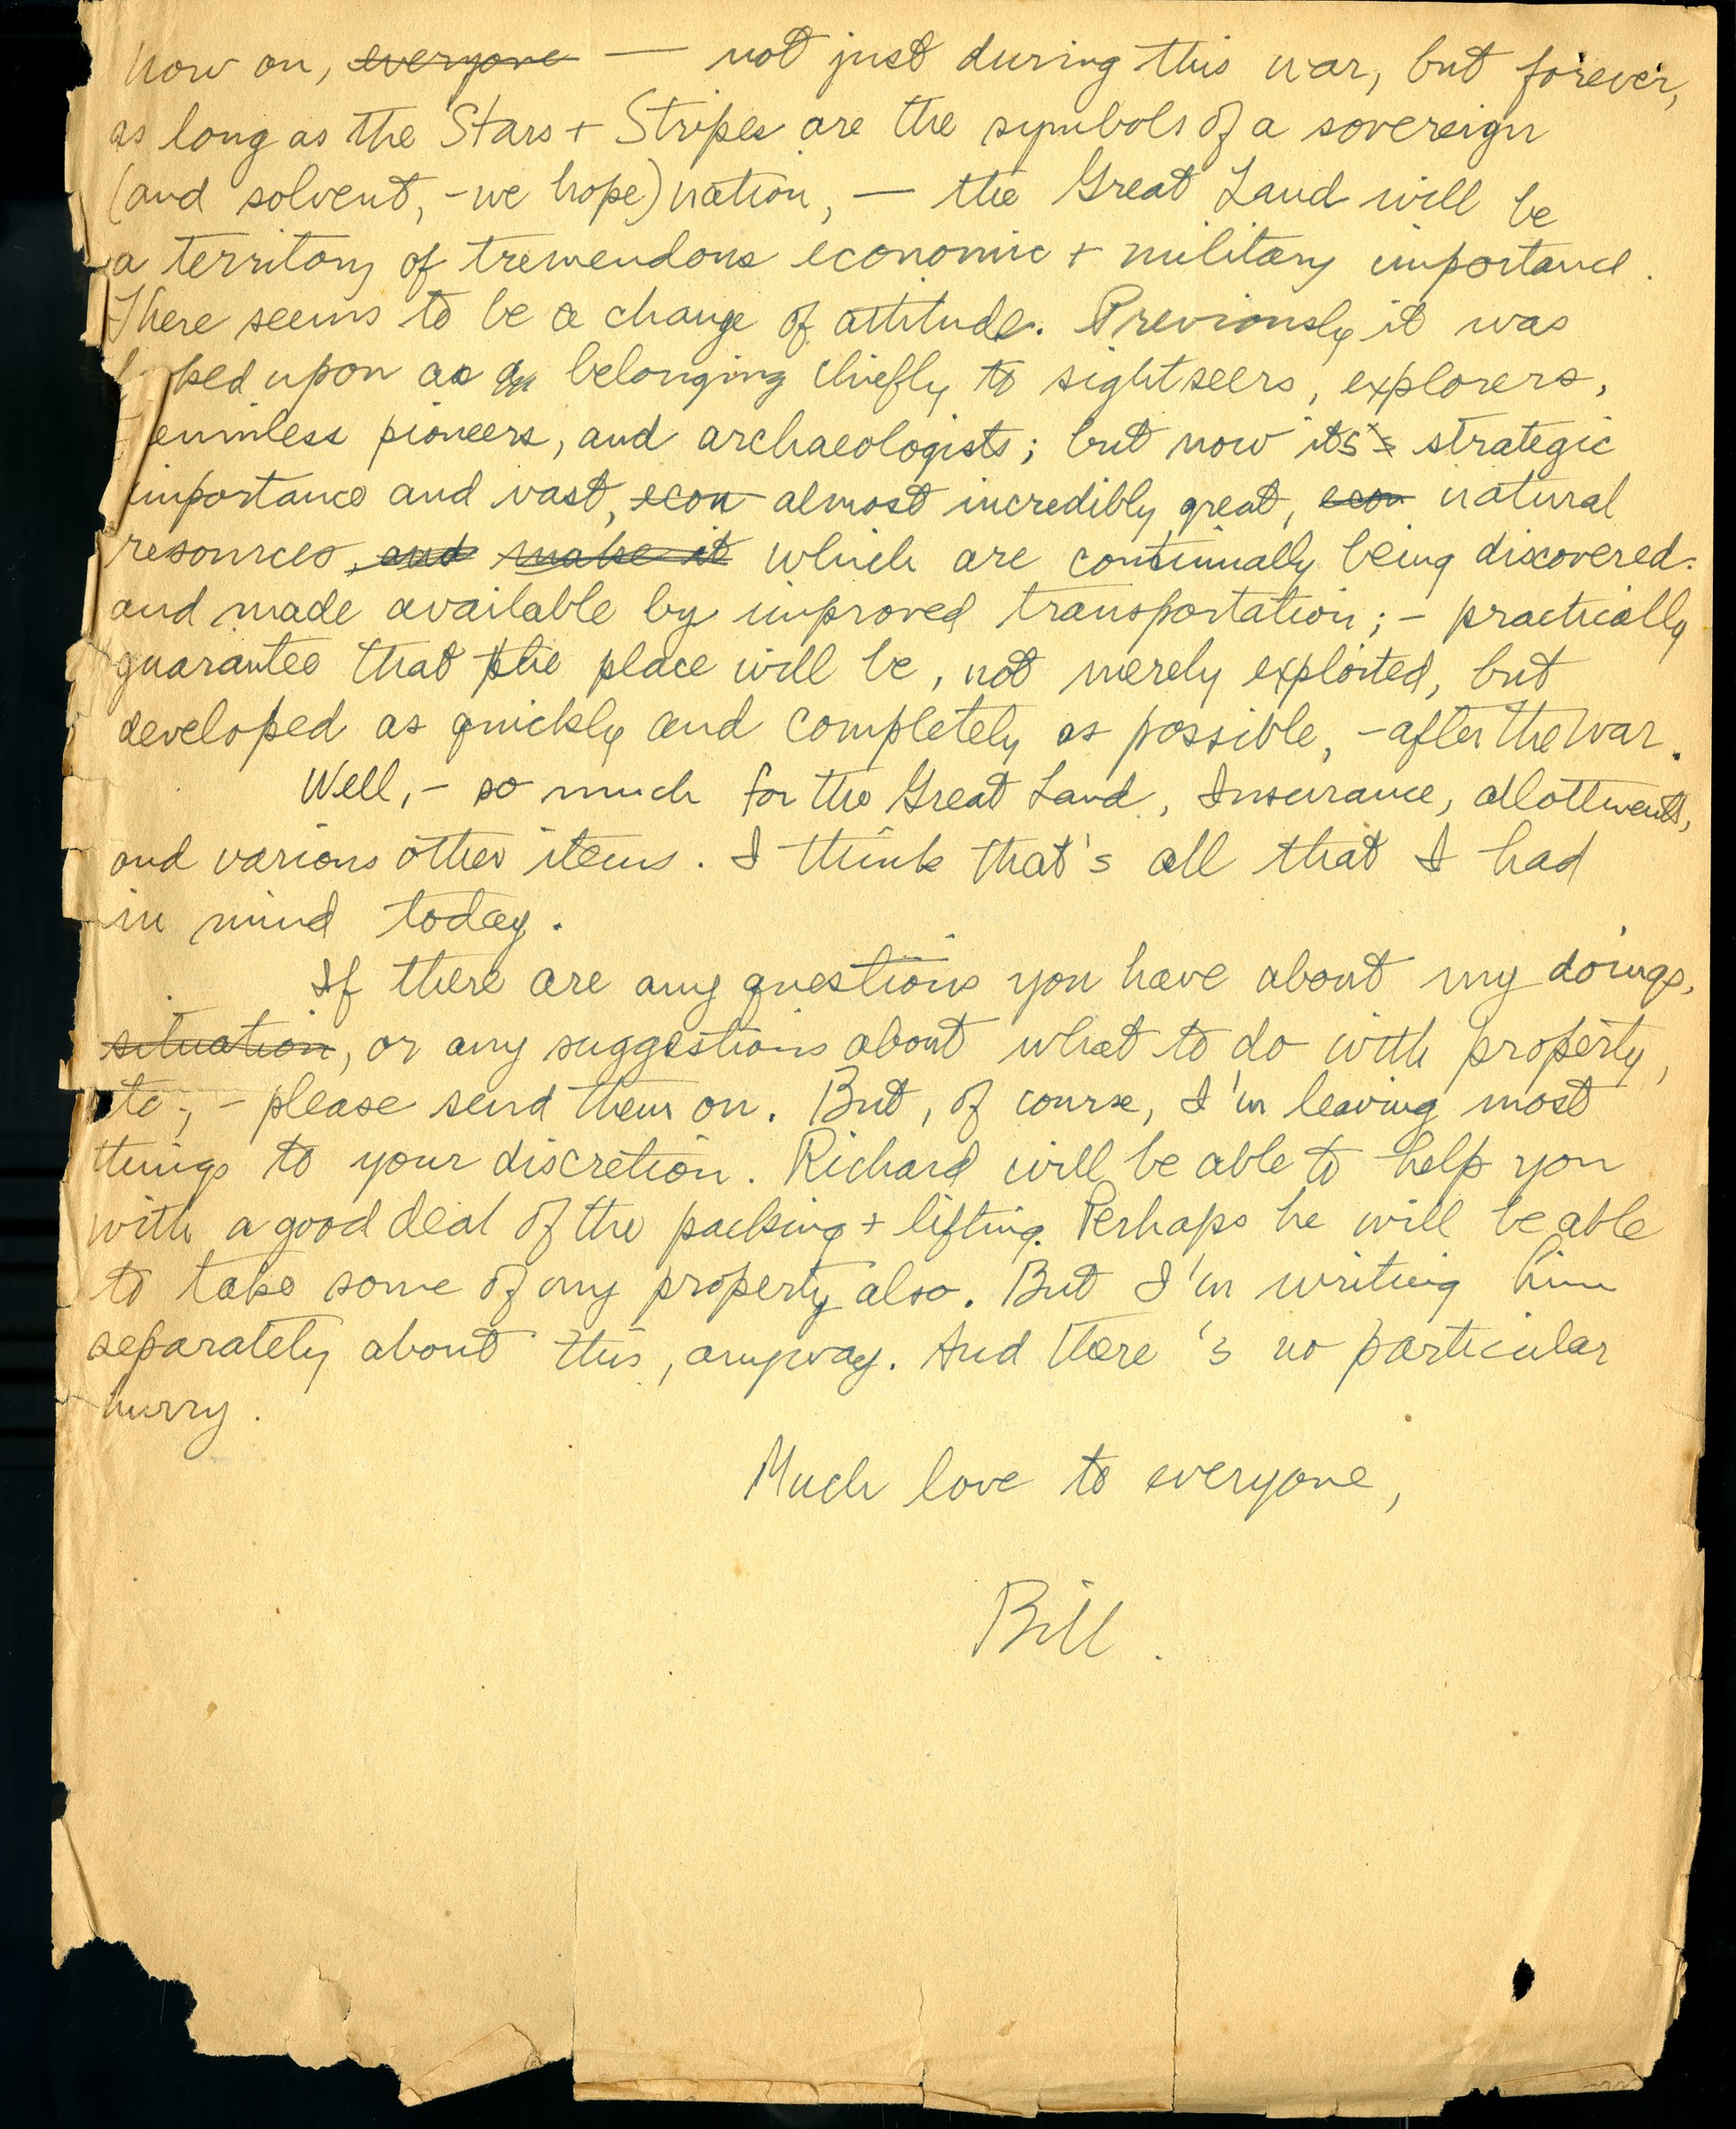 now on, everyone — not just during this war, but forever,
as long as the Stars + Stripes are the symbols of a sovereign
(and solvent, - we hope) nation, — the Great Land will be
a territory of tremendous economic + military importance.
There seems to be a change of attitude. Previously it was
ked upon as belonging chiefly to sightseers, explorers,
penniless pioneers, and archaeologists; but now its strategic
importance and vast, econ almost incredibly great, econ natural
resources, and make it which are continually being discovered
and made available by improved transportation; - practically
guarantee that the place will be, not merely exploited, but
developed as quickly and completely as possible, - after the war.
Well, - so much for the Great Land, Insurance, allottments,
and various other items. I think that's all that I had
in mind today.
If there are any questions you have about my doings,
situation, or any suggestions about what to do with property,
etc, - please send them on. But, of course, I'm leaving most
things to your discretion. Richard will be able to help you
with a good deal of the packing + lifting. Perhaps he will be able
to take some of my property also. But I'm writing him
separately about this, anyway. And there's no particular
hurry.
Much love to everyone,
Bill.